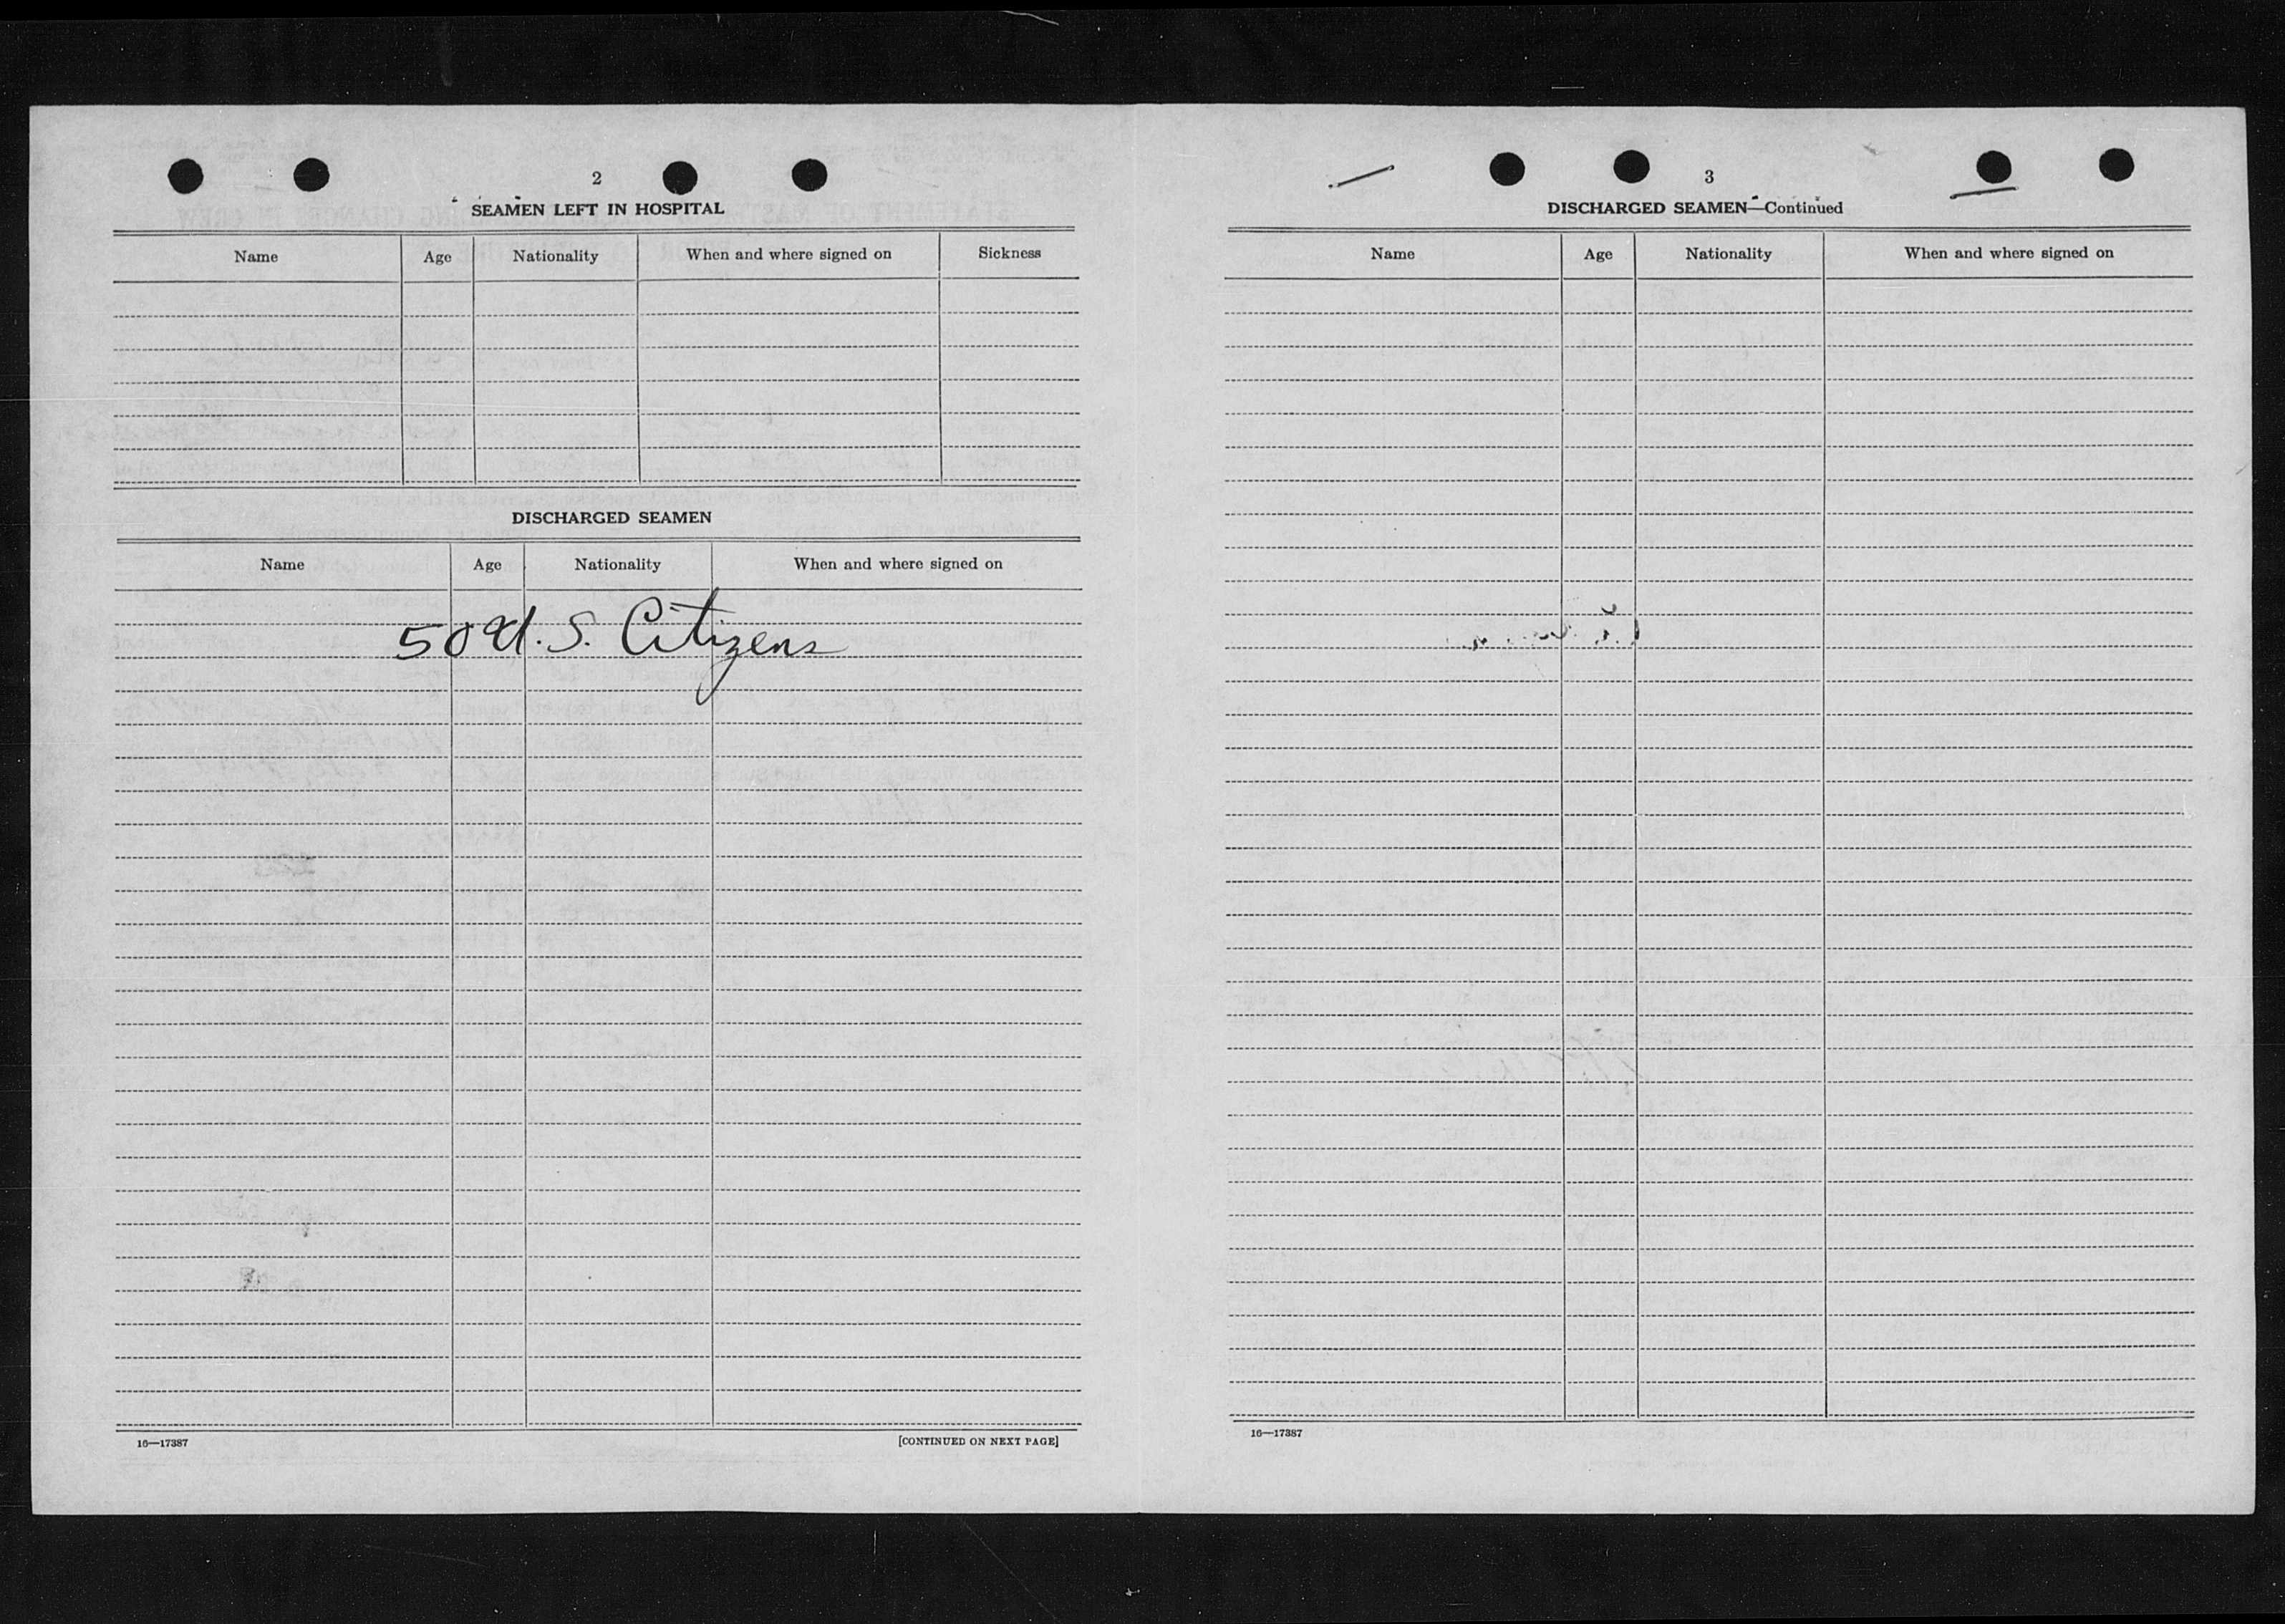 2
SEAMEN LEFT IN HOSPITAL
Name Age Nationality When and where signed on Sickness
DISCHARGED SEAMEN
Name Age Nationality When and where signed on
50 U.S. Citizens
16—17387 [CONTINUED ON NEXT PAGE]
3
DISCHARGED SEAMEN—Continued
Name Age Nationality When and where signed on
16—17387